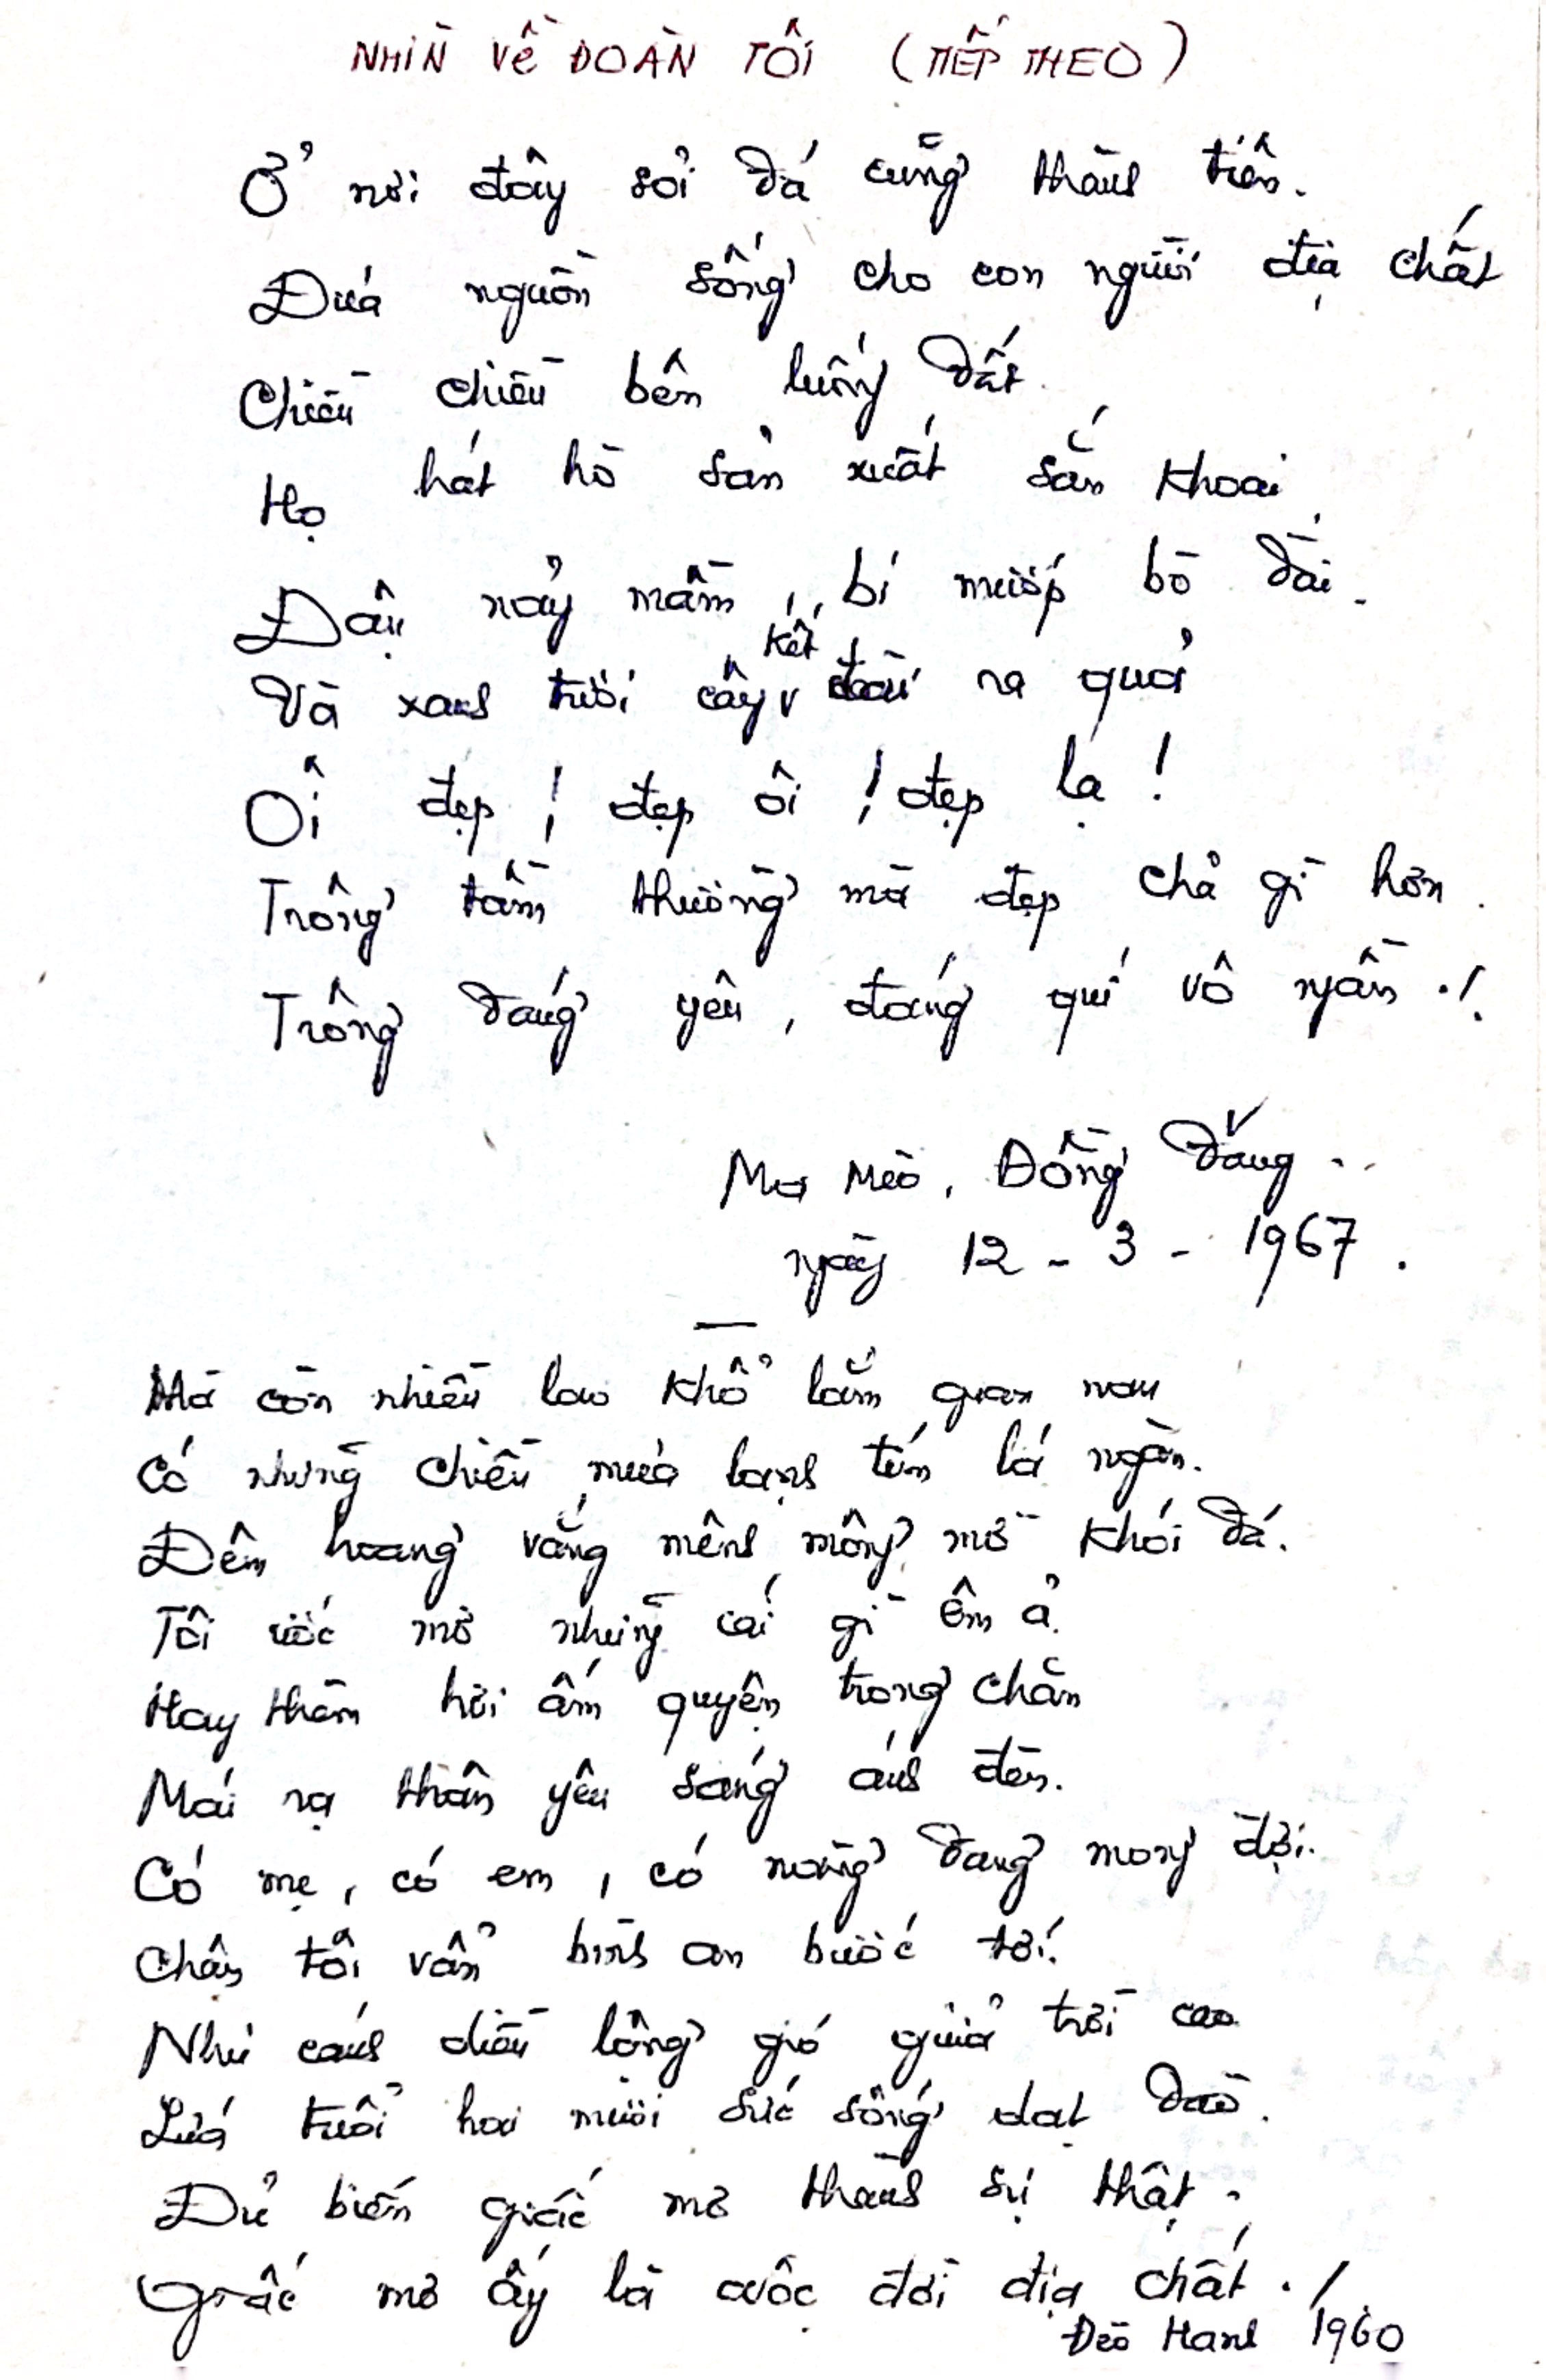 NHÌN VỀ ĐOÀN TÔI (TIẾP THEO)
Ở nơi đây sỏi đá cũng thành tiền.
Đưa nguồn sống cho con người địa chất
Chiều chiều bên luống đất.
Họ hát hò sản xuất sắn khoai
Đậu nảy mầm, bí mướp bò dài.
Và xanh tươi cây kết trái ra quả
Ôi đẹp! đẹp ôi! đẹp lạ!
Trông tầm thường mà đẹp chả gì hơn.
Trông đáng yêu, đáng quí vô ngần ./.
Mơ Mèo, Đồng Đăng..
ngày 12 - 3 - 1967.
Mà còn nhiều lao khổ lắm gian nan
Có những chiều mưa lạnh tím lá ngàn.
Đêm hoang vắng mênh mông mờ khói đá.
Tôi ước mơ những cái gì êm ả.
Hay thêm hơi ấm quyện trong chăn
Mái rạ thân yêu sáng ánh đèn.
Có mẹ, có em, có nàng đang mong đợi.
Chân tôi vẫn bình an bước tới.
Như cánh diều lộng gió giữa trời cao
Lứa tuổi hai mươi sức sống dạt dào.
Đủ biến giấc mơ thành sự thật.
Giấc mơ ấy là cuộc đời địa chất ./.
Đèo Hanh 1960